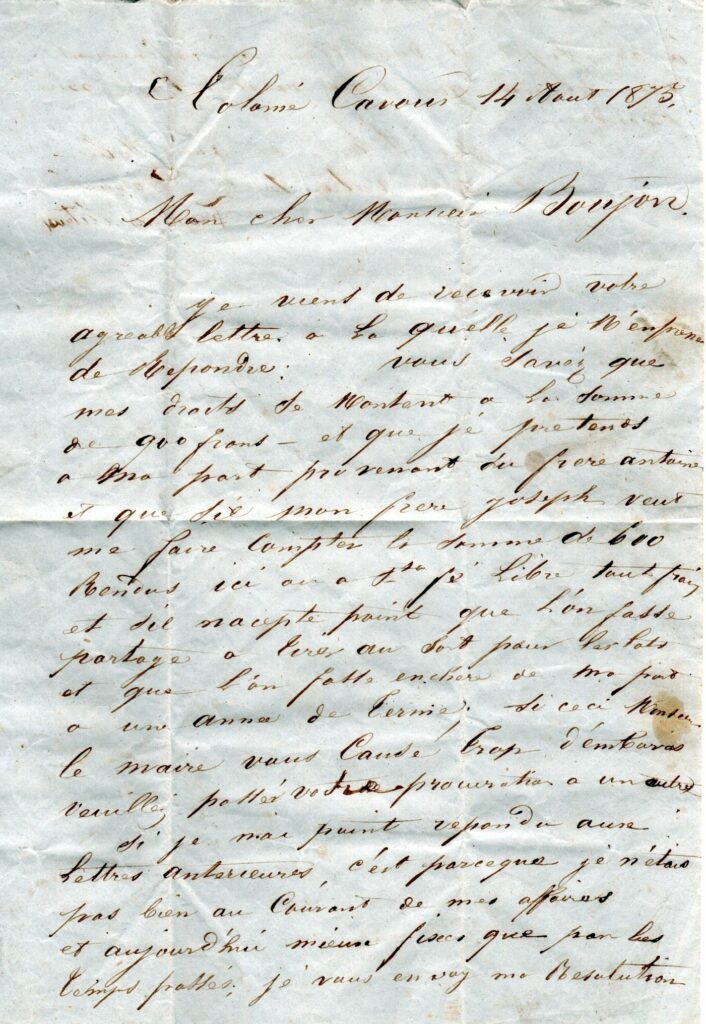 Colonié Cavour 14 Aout 1875.
Mon cher Monsieur Boujon.
je viens de recevoir votre
agreable lettre a la quélle jé M'enprese
de Repondre. vous Savéz que
mes droits se Montent a la Somme
de 900 frans - et que jé pretends
a Ma part provenant du frere antoine
et que Sil mon frere joseph veut
me faire Compter la Somme de 600
Rendus ici ou a Sta fé Libre tout frais
et Sil nacepte point que l'on fasse
partage a tiré au Sort pour les lots
et que l'on fasse enchere de Ma part
a une anneé de Termé; Si ceci Monsieur
le maire vous Causé Trop d'embaras
veuilléz passér votre procuration a un autre
Si je n'ai point repondu aux
Lettres anterieures, c'est parceque je n'etais
pas bien au Courant de mes affaires
et aujourd'hui mieux fixés que par les
Temps passés; jé vous envoy ma Resolution